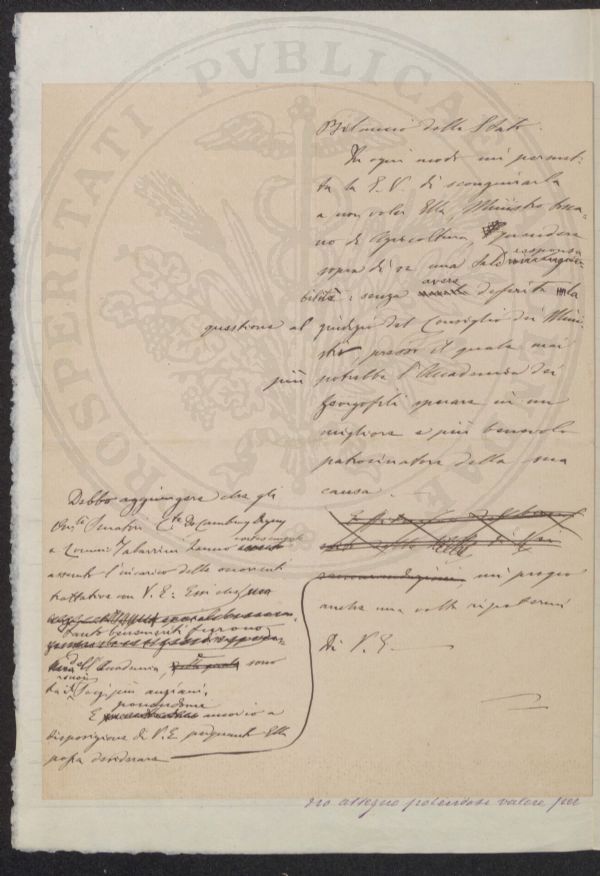 PROSPERITATI PVBLICAE
Bilancio dello Stato.
In ogni modo mi permet:
ta la E. V. di scongiurarla
a non voler Ella, Ministro tosca:
no di Agricoltura, prendere
sopra di se una tale responsa
bilità: senza avere deferita la
questione al giudizio del Consiglio dei Mini:
stri, presso il quale mai
più potrebbe l'Accademia dei
Georgofili sperare in un
migliore e più benevolo
patrocinatore della sua
causa.
mi pregio
anche una volta ripetermi
Di V. E.
Debbo aggiungere che gli
Senatori Cte De Cambray Digny
e Comm. Tabarrini hanno
assunto l'incarico delle occorrenti
trattative con V. E: Essi che
tanto benemeriti figurano
dell'Accademia, sono
Socj più anziani.
E ponendome ancor io a
disposizione di V. E. per quanto Ella
possa desiderare
no assegno potendosi valere per